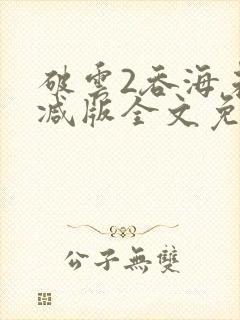 破雲2吞海
减版全文免
公子無雙